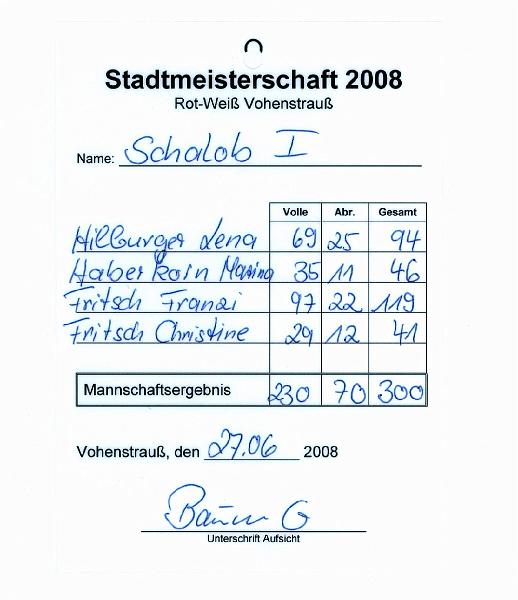 Stadtmeisterschaft 2008
Rot-Weiß Vohenstrauß
Name: Schalob I
Volle Abr. Gesamt
Hilburger Lena 69 25 94
Haberkorn Marina 35 11 46
Fritsch Franzi 97 22 119
Fritsch Christine 29 12 41
Mannschaftsergebnis 230 70 300
Vohenstrauß, den 27.06 2008
G
Unterschrift Aufsicht